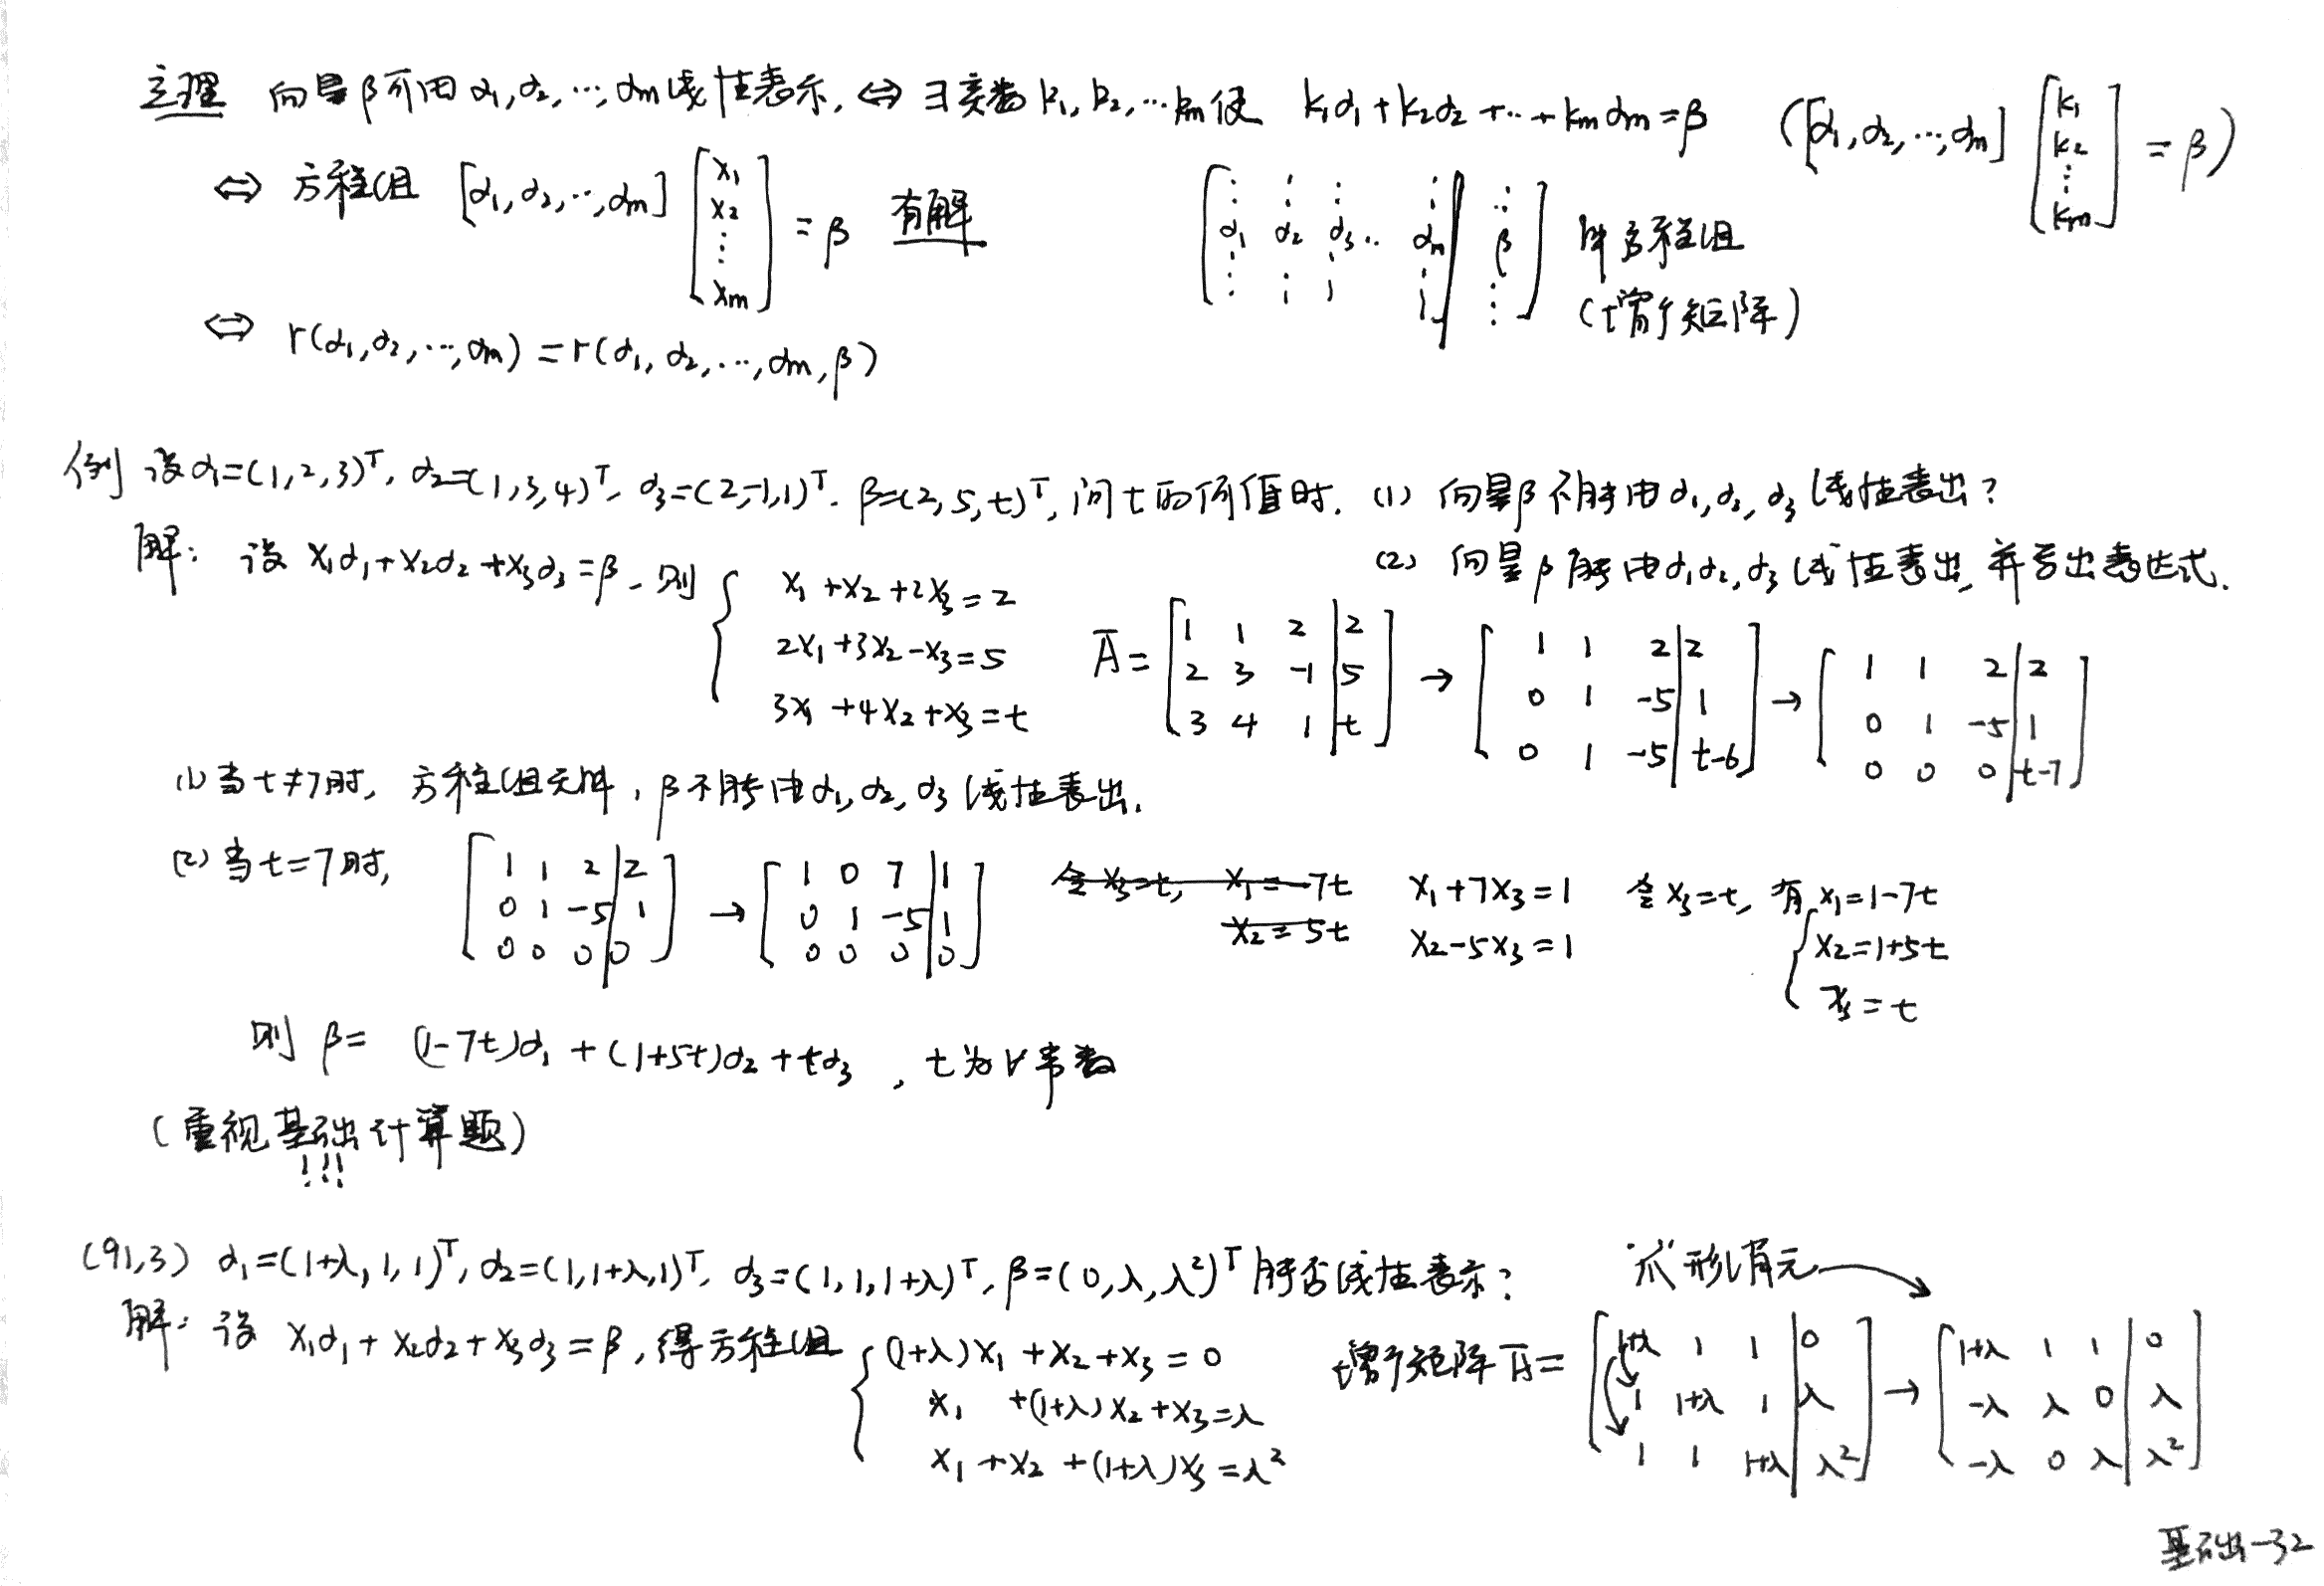 定理 向量β可由α₁,α₂,…,αm线性表示, ⇔ ∃实数k₁,k₂,…km使 k₁α₁+k₂α₂+…+kmαm=β ([α₁,α₂,…,αm] [k₁ k₂ ⋮ km] = β)
⇔ 方程组 [α₁,α₂,…,αm] [x₁ x₂ ⋮ xm] = β 有解 [α₁ α₂ α₃ … αm | β] 解方程组
(增广矩阵)
⇔ r(α₁,α₂,…,αm)=r(α₁,α₂,…,αm,β)
例 设α₁=(1,2,3)ᵀ, α₂=(1,3,4)ᵀ, α₃=(2,-1,1)ᵀ. β=(2,5,t)ᵀ, 问t为何值时. (1) 向量β不能由α₁,α₂,α₃线性表出?
(2) 向量β能由α₁α₂,α₃线性表出, 并写出表达式.
解: 设 x₁α₁+x₂α₂+x₃α₃=β, 则
x₁+x₂+2x₃=2
2x₁+3x₂-x₃=5
3x₁+4x₂+x₃=t
Ā= [1 1 2 | 2; 2 3 -1 | 5; 3 4 1 | t] → [1 1 2 | 2; 0 1 -5 | 1; 0 1 -5 | t-6] → [1 1 2 | 2; 0 1 -5 | 1; 0 0 0 | t-7]
(1) 当t≠7时, 方程组无解, β不能由α₁,α₂,α₃线性表出.
(2) 当t=7时, [1 1 2 | 2; 0 1 -5 | 1; 0 0 0 | 0] → [1 0 7 | 1; 0 1 -5 | 1; 0 0 0 | 0] 令x₃=t, x₁=-7t x₁+7x₃=1 令x₃=t, 有 x₁=1-7t
x₂=5t x₂-5x₃=1 x₂=1+5t
x₃=t
则 β= (1-7t)α₁+(1+5t)α₂+tα₃ , t为∀常数
(重视基础计算题)
!!!
(91,3) α₁=(1+λ,1,1)ᵀ, α₂=(1,1+λ,1)ᵀ, α₃=(1,1,1+λ)ᵀ, β=(0,λ,λ²)ᵀ能否线性表示?
"爪"形消元
解: 设 x₁α₁+x₂α₂+x₃α₃=β, 得方程组
(1+λ)x₁+x₂+x₃=0
x₁+(1+λ)x₂+x₃=λ
x₁+x₂+(1+λ)x₃=λ²
增广矩阵 Ā= [1+λ 1 1 | 0; 1 1+λ 1 | λ; 1 1 1+λ | λ²] → [1+λ 1 1 | 0; -λ λ 0 | λ; -λ 0 λ | λ²]
基础-32